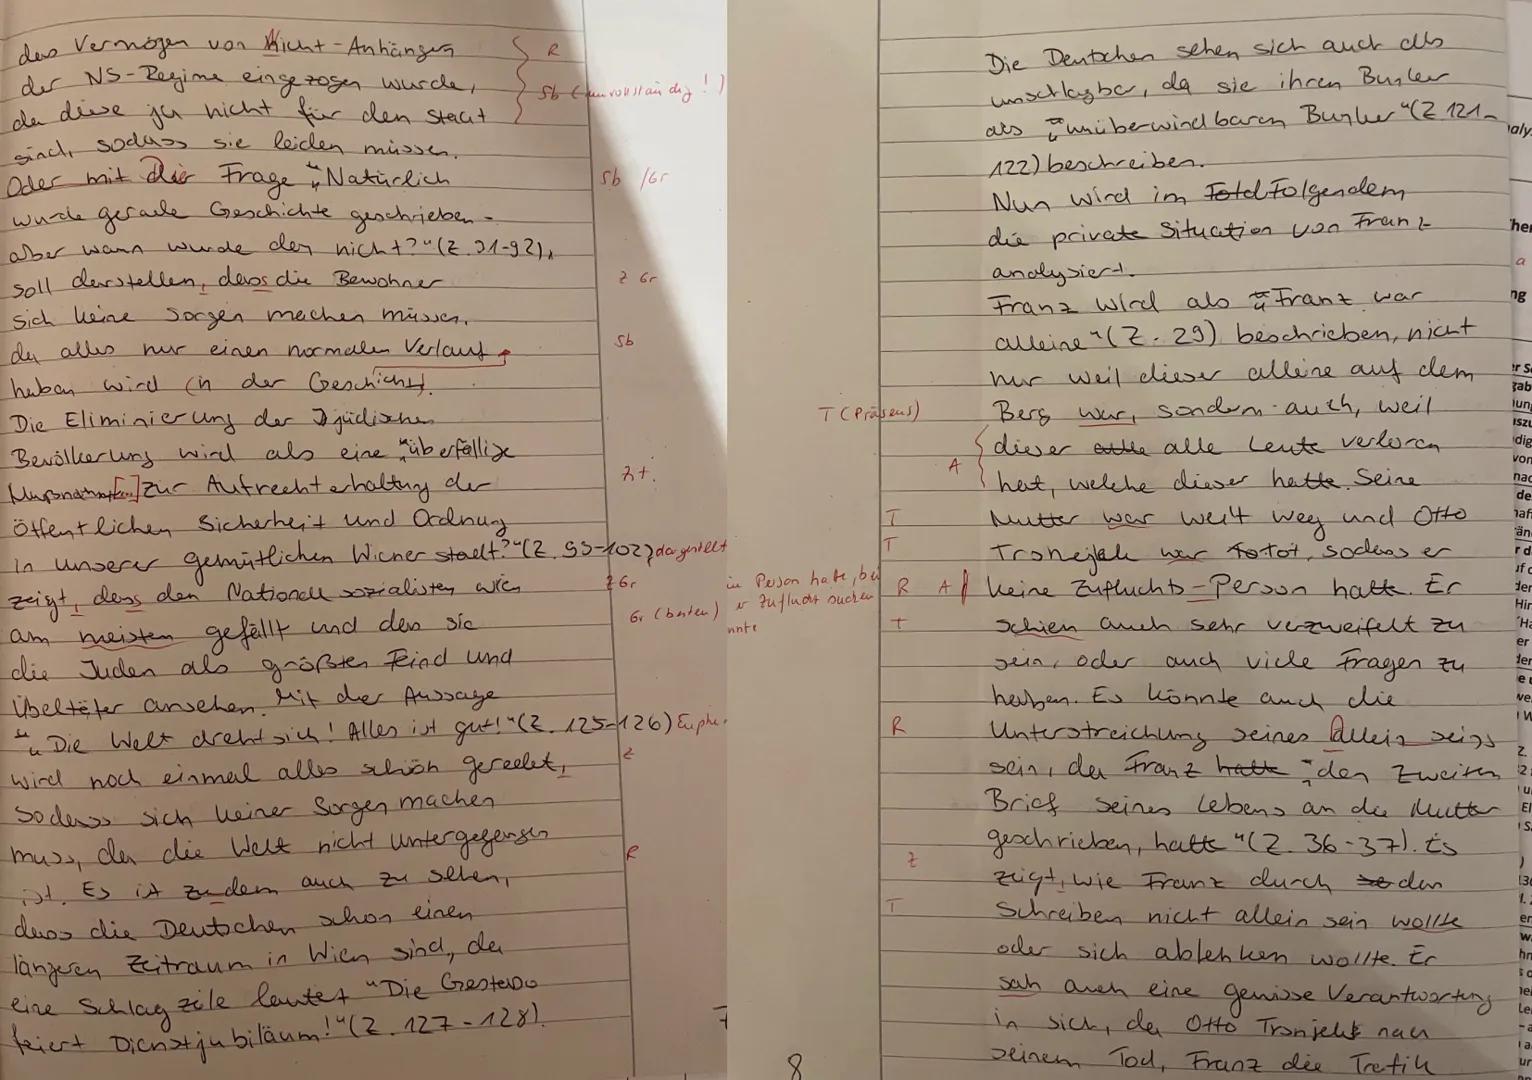 das Vermögen von Nicht-Anhängern
der NS-Regime eingezogen wurde,
da diese ja nicht für den Staat
sind, sodass sie leiden müssen.
Oder mit der Frage "Natürlich
wurde gerade Geschichte geschrieben -
aber wann wurde den nicht?" (Z. 91-92),
soll darstellen, dass die Bewohner
sich keine Sorgen machen müssen,
da alles nur einen normalen Verlauf
haben wird (in der Geschichte).
Die Eliminierung der jüdischen
Bevölkerung wird als eine "überfällige
Massnahme[...] zur Aufrechterhaltung der
öffentlichen Sicherheit und Ordnung
in unserer gemütlichen Wiener stadt?" (Z. 99-102) dargestellt
zeigt, dass den Nationalsozialisten wien
am meisten gefällt und das sie
die Juden als größten Feind und
Übeltäter ansehen. Mit der Aussage
"Die Welt dreht sich! Alles ist gut!" (Z. 125-126)
wird noch einmal alles schön geredet,
sodass sich keiner Sorgen machen
muss, da die Welt nicht Untergegangen
ist. Es ist zudem auch zu sehen,
dass die Deutschen schon einen
längeren Zeitraum in Wien sind, da
eine Schlagzeile lautet "Die Gestapo
feiert Dienstjubiläum!" (Z. 127-128).
R
Sb (unvollständig!)
Sb /Gr
Z Gr
Sb
Zt.
Z Gr
Gr (besten)
Z
R
Die Deutschen sehen sich auch als
unschlagbar, da sie ihren Bunker
als "unüberwindbaren Bunker" (Z. 121-
122) beschreiben.
Nun wird im Folgendem
die private Situation von Franz
analysiert.
Franz wird als "Franz war
alleine" (Z. 29) beschrieben, nicht
nur weil dieser alleine auf dem
Berg war, sondern auch, weil
dieser alle Leute verloren
hat, welche dieser hatte. Seine
Mutter war weit weg und Otto
Tronsjek war tot, sodass er
keine Zufluchts-Person hatte. Er
schien auch sehr verzweifelt zu
sein, oder auch viele Fragen zu
haben. Es könnte auch die
Unterstreichung seines Allein seins
sein, da Franz hatt "den Zweiten
Brief seines Lebens an die Mutter
geschrieben, hatte" (Z. 36-37). Es
zeigt, wie Franz durch den
Schreiben nicht allein sein wollte
oder sich ablenken wollte. Er
sah auch eine gewisse Verantwortung
in sich, da Otto Tronsjek nach
seinem Tod, Franz die Trafik
T (Präsens)
A
T
T
R A
T
R
Z
T
8